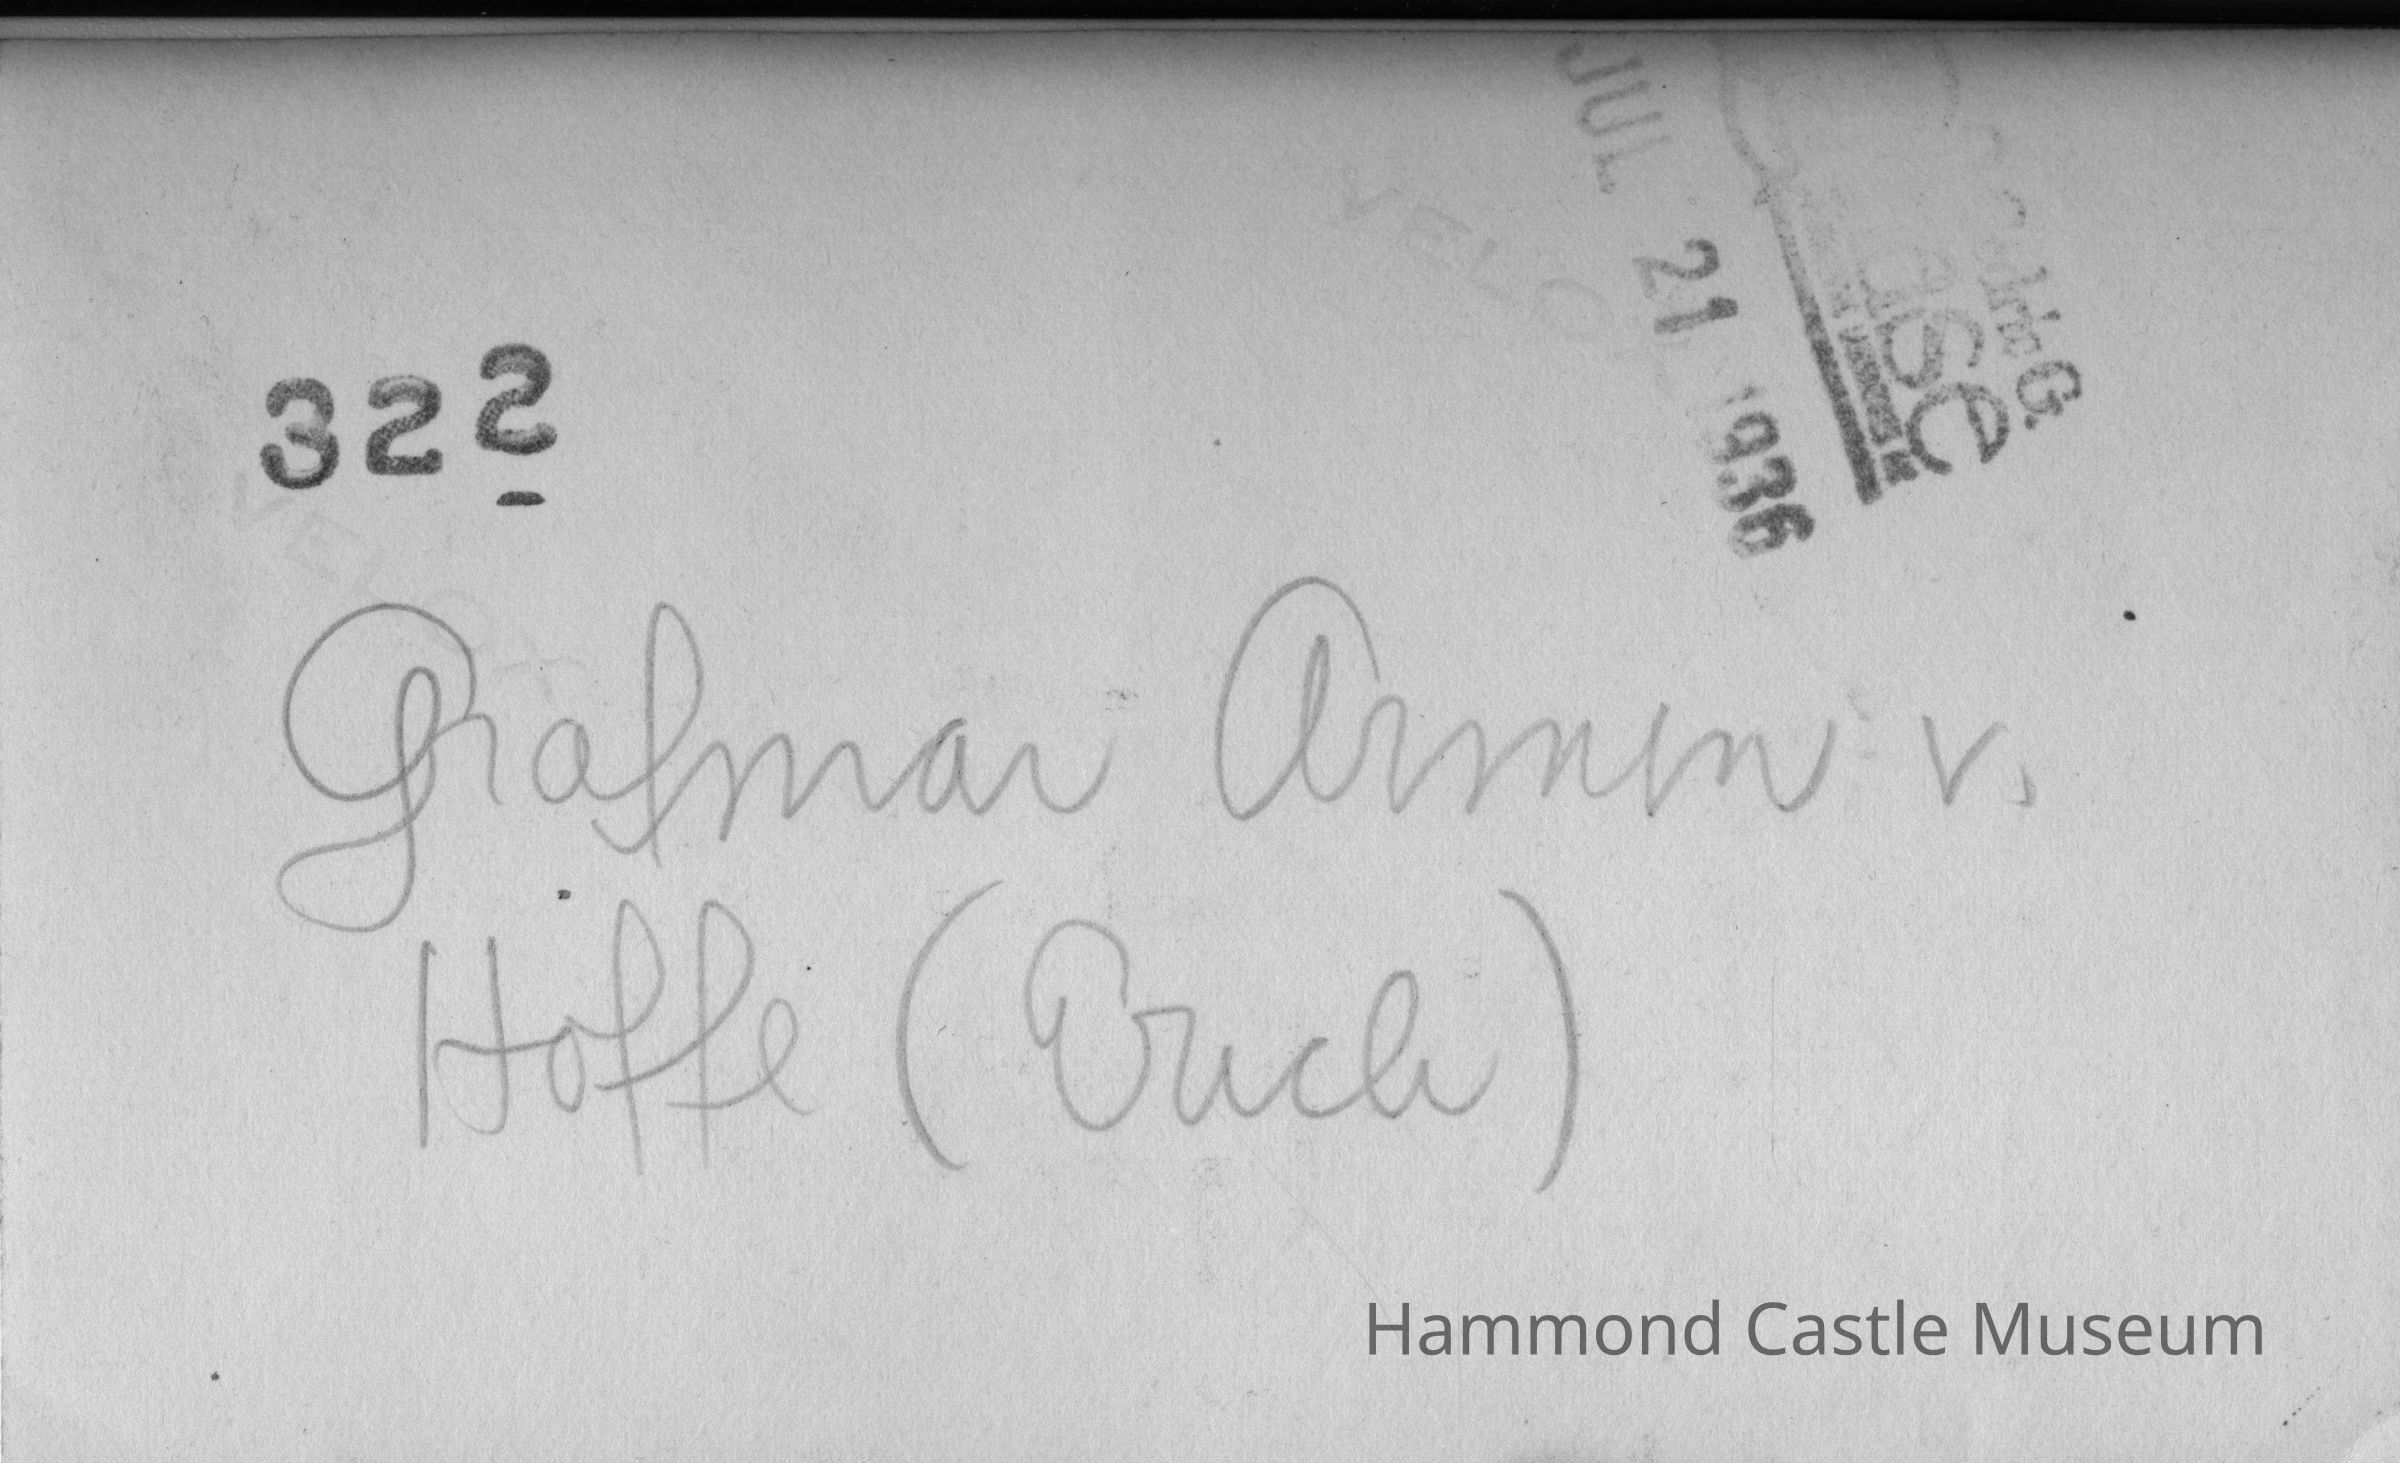 JUL 21 1936
322
Grafmar Armin v.
Hoffe (Erich)
Hammond Castle Museum